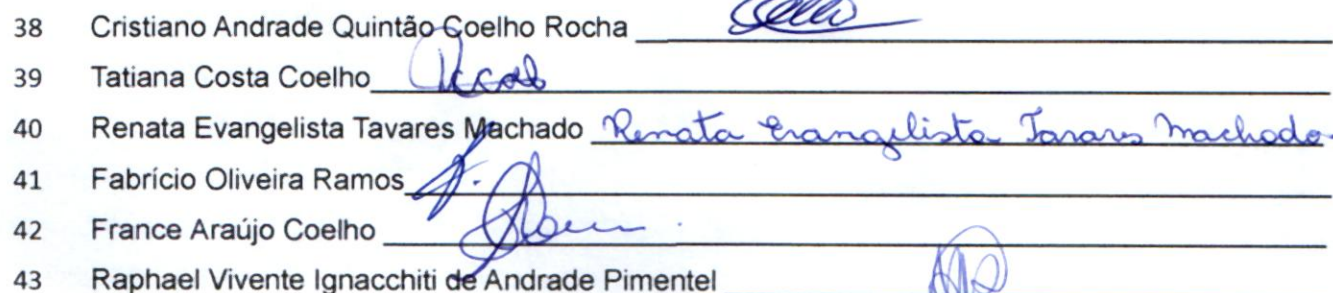 38 Cristiano Andrade Quintão Coelho Rocha
39 Tatiana Costa Coelho
40 Renata Evangelista Tavares Machado Renata Evangelista Tavares Machado
41 Fabrício Oliveira Ramos
42 France Araújo Coelho
43 Raphael Vivente Ignacchiti de Andrade Pimentel